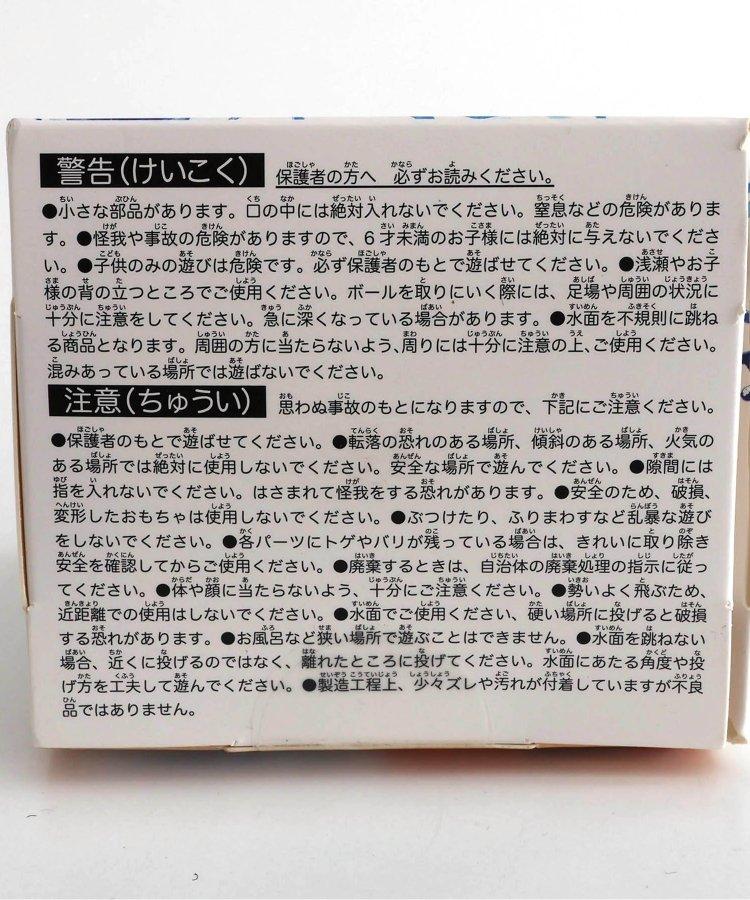 警告(けいこく) 保護者の方へ 必ずお読みください。
●小さな部品があります。口の中には絶対入れないでください。窒息などの危険がありま
す。●怪我や事故の危険がありますので、6才未満のお子様には絶対に与えないでくださ
い。●子供のみの遊びは危険です。必ず保護者のもとで遊ばせてください。●浅瀬やお子
様の背の立つところでご使用ください。ボールを取りにいく際には、足場や周囲の状況に
十分に注意をしてください。急に深くなっている場合があります。●水面を不規則に跳ね
る商品となります。周囲の方に当たらないよう、周りには十分に注意の上、ご使用ください。
混みあっている場所では遊ばないでください。
注意(ちゅうい) 思わぬ事故のもとになりますので、下記にご注意ください。
●保護者のもとで遊ばせてください。●転落の恐れのある場所、傾斜のある場所、火気の
ある場所では絶対に使用しないでください。安全な場所で遊んでください。●隙間には
指を入れないでください。はさまれて怪我をする恐れがあります。●安全のため、破損、
変形したおもちゃは使用しないでください。●ぶつけたり、ふりまわすなど乱暴な遊び
をしないでください。●各パーツにトゲやバリが残っている場合は、きれいに取り除き
安全を確認してからご使用ください。●廃棄するときは、自治体の廃棄処理の指示に従っ
てください。●体や顔に当たらないよう、十分にご注意ください。●勢いよく飛ぶため、
近距離での使用はしないでください。●水面でご使用ください、硬い場所に投げると破損
する恐れがあります。●お風呂など狭い場所で遊ぶことはできません。●水面を跳ねない
場合、近くに投げるのではなく、離れたところに投げてください。水面にあたる角度や投
げ方を工夫して遊んでください。●製造工程上、少々ズレや汚れが付着していますが不良
品ではありません。